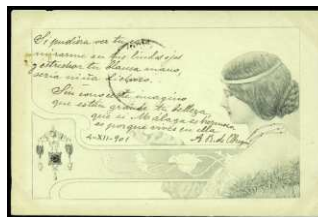 Si pudiera ver tu
mirarme en tus lindos ojos
y estrechar tu blanca mano,
seria niña dichoso.
Sin conocerte imagino
que es tan grande tu belleza
que si Málaga es hermosa
es porque vives en ella
4-XII-901 A. R. de